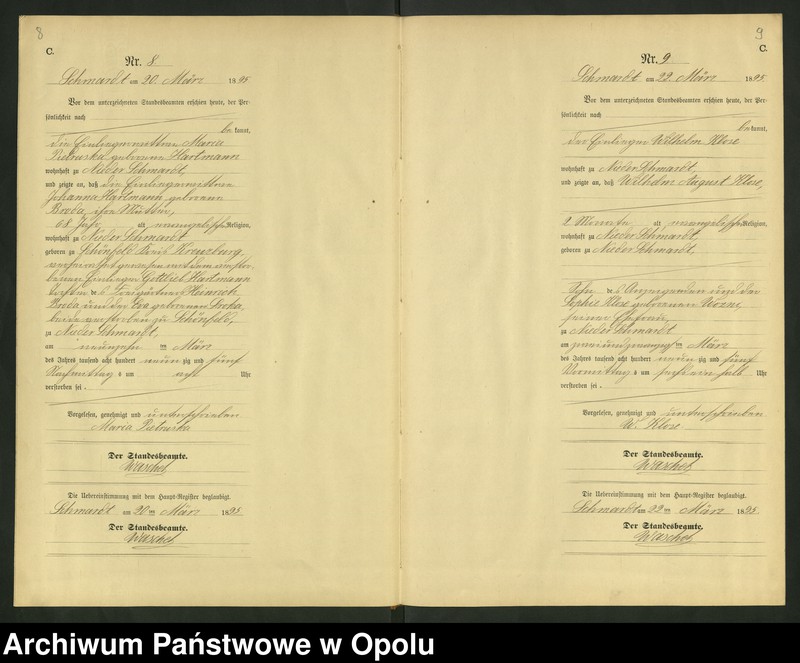 8
C.
Nr. 8.
Schmardt am 20. März 1895
Vor dem unterzeichneten Standesbeamten erschien heute, der Per-
sönlichkeit nach
bekannt,
die Einliegerwittwe Maria
geborene Hartmann
wohnhaft zu Nieder Schmardt,
und zeigte an, daß die Einliegerwittwe
Johanna Hartmann geborene
Broda, ihre Mutter,
68 Jahr, alt evangelischer Religion,
wohnhaft zu Nieder Schmardt
geboren zu Schönfeld Kreis Kreuzburg,
verheirathet gewesen mit dem verstor-
benen Einlieger Gottlieb Hartmann
Tochter des Freigärtners Heinrich
Broda und der Eva geborenen
beide verstorben zu Schönfeld,
zu Nieder Schmardt,
am neunzehn ten März
des Jahres tausend acht hundert neun zig und fünf
Nachmittags um acht Uhr
verstorben sei.
Vorgelesen, genehmigt und unterschrieben
Maria
Der Standesbeamte.
Waschek
Die Uebereinstimmung mit dem Haupt-Register beglaubigt.
Schmardt am 20ten März 1895
Der Standesbeamte.
Waschek
9
C.
Nr. 9
Schmardt am 22. März 1895
Vor dem unterzeichneten Standesbeamten erschien heute, der Per-
sönlichkeit nach
bekannt,
der Einlieger Wilhelm Klose
wohnhaft zu Nieder Schmardt,
und zeigte an, daß Wilhelm August Klose,
2 Monate, alt evangelischer Religion,
wohnhaft zu Nieder Schmardt,
geboren zu Nieder Schmardt,
Sohn des Anzeigenden und der
Sophie Klose geborenen
seiner Ehefrau,
zu Nieder Schmardt
am zweiundzwanzigsten März
des Jahres tausend acht hundert neun zig und fünf
Vormittags um sechs ein halb Uhr
verstorben sei.
Vorgelesen, genehmigt und unterschrieben
W. Klose
Der Standesbeamte.
Waschek
Die Uebereinstimmung mit dem Haupt-Register beglaubigt.
Schmardt am 22ten März 1895
Der Standesbeamte.
Waschek
Archiwum Państwowe w Opolu